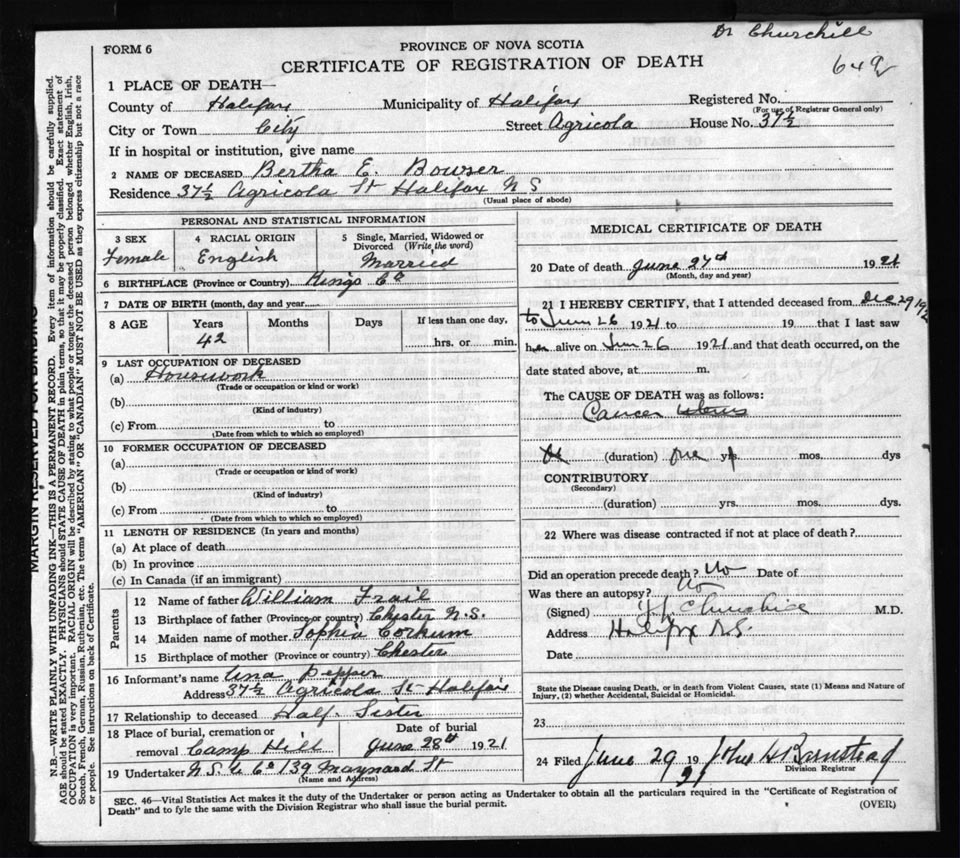 Dr Churchill
FORM 6
PROVINCE OF NOVA SCOTIA
CERTIFICATE OF REGISTRATION OF DEATH
649
1 PLACE OF DEATH—
County of Halifax Municipality of Halifax Registered No.
(For use of Registrar General only)
City or Town City Street Agricola House No. 37½
If in hospital or institution, give name
2 NAME OF DECEASED Bertha E. Bowser
Residence 37½ Agricola St Halifax N S
(Usual place of abode)
PERSONAL AND STATISTICAL INFORMATION
3 SEX
Female
4 RACIAL ORIGIN
English
5 Single, Married, Widowed or
Divorced (Write the word)
Married
6 BIRTHPLACE (Province or Country) Kings Co
7 DATE OF BIRTH (month, day and year)
8 AGE Years Months Days If less than one day,
42 hrs. or min.
9 LAST OCCUPATION OF DECEASED
(a) Housework
(Trade or occupation or kind or work)
(b)
(Kind of industry)
(c) From to
(Date from which to which so employed)
10 FORMER OCCUPATION OF DECEASED
(a)
(Trade or occupation or kind of work)
(b)
(Kind of industry)
(c) From to
(Date from which to which so employed)
11 LENGTH OF RESIDENCE (In years and months)
(a) At place of death
(b) In province
(c) In Canada (if an immigrant)
Parents
12 Name of father William Frail
13 Birthplace of father (Province or country) Chester N.S.
14 Maiden name of mother Sophia Corkum
15 Birthplace of mother (Province or country) Chester
16 Informant's name Ana Pepper
Address 37½ Agricola St Halifax
17 Relationship to deceased Half Sister
18 Place of burial, cremation or Date of burial
removal Camp Hill June 28th 1921
19 Undertaker N.S. U Co 139 Maynard St
(Name and Address)
MEDICAL CERTIFICATE OF DEATH
20 Date of death June 27th 1921
(Month, day and year)
21 I HEREBY CERTIFY, that I attended deceased from Dec 29 192
to Jun 26 1921 to 19 that I last saw
her alive on Jun 26 1921 and that death occurred, on the
date stated above, at m.
The CAUSE OF DEATH was as follows:
Cancer Uterus
(duration) one yr mos. dys
CONTRIBUTORY
(Secondary)
(duration) yrs. mos. dys.
22 Where was disease contracted if not at place of death?
Did an operation precede death? No Date of
Was there an autopsy? No
(Signed) Churchill M.D.
Address Halifax N.S.
Date
State the Disease causing Death, or in death from Violent Causes, state (1) Means and Nature of
Injury, (2) whether Accidental, Suicidal or Homicidal.
23
24 Filed June 29 1921 John H Barnstead
Division Registrar
SEC. 46—Vital Statistics Act makes it the duty of the Undertaker or person acting as Undertaker to obtain all the particulars required in the "Certificate of Registration of
Death" and to fyle the same with the Division Registrar who shall issue the burial permit.
(OVER)
MARGIN RESERVED FOR BINDING
N.B.—WRITE PLAINLY, WITH UNFADING INK—THIS IS A PERMANENT RECORD. Every item of information should be carefully supplied.
AGE should be stated EXACTLY. PHYSICIANS should STATE CAUSE OF DEATH in plain terms, so that it may be properly classified. Exact statement of
OCCUPATION is very important. RACIAL ORIGIN will be described by stating to what people or tongue the deceased person belonged whether English, Irish,
Scotch, French, German, Russian, Ruthenian, etc. The terms "AMERICAN" OR "CANADIAN" MUST NOT BE USED as they express citizenship but not a race
or people. See instructions on back of Certificate.